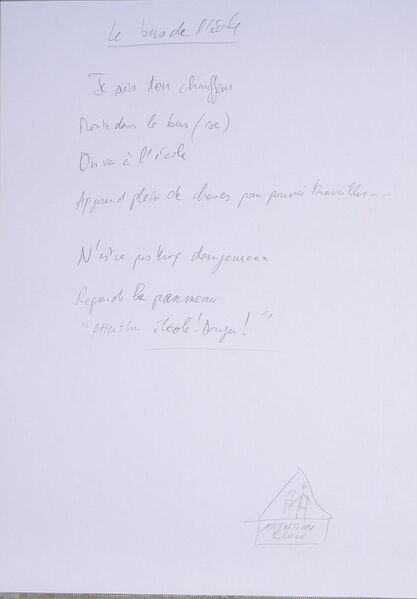 Le bus de l'école
Je suis ton chauffeur
Monte dans le bus (se)
On va à l'école
Apprend plein de choses pour pouvoir travailler---
N'est ce pas trop dangereux
Regarde le panneau
"Attention école! Danger!"
ATTENTION
ECOLE